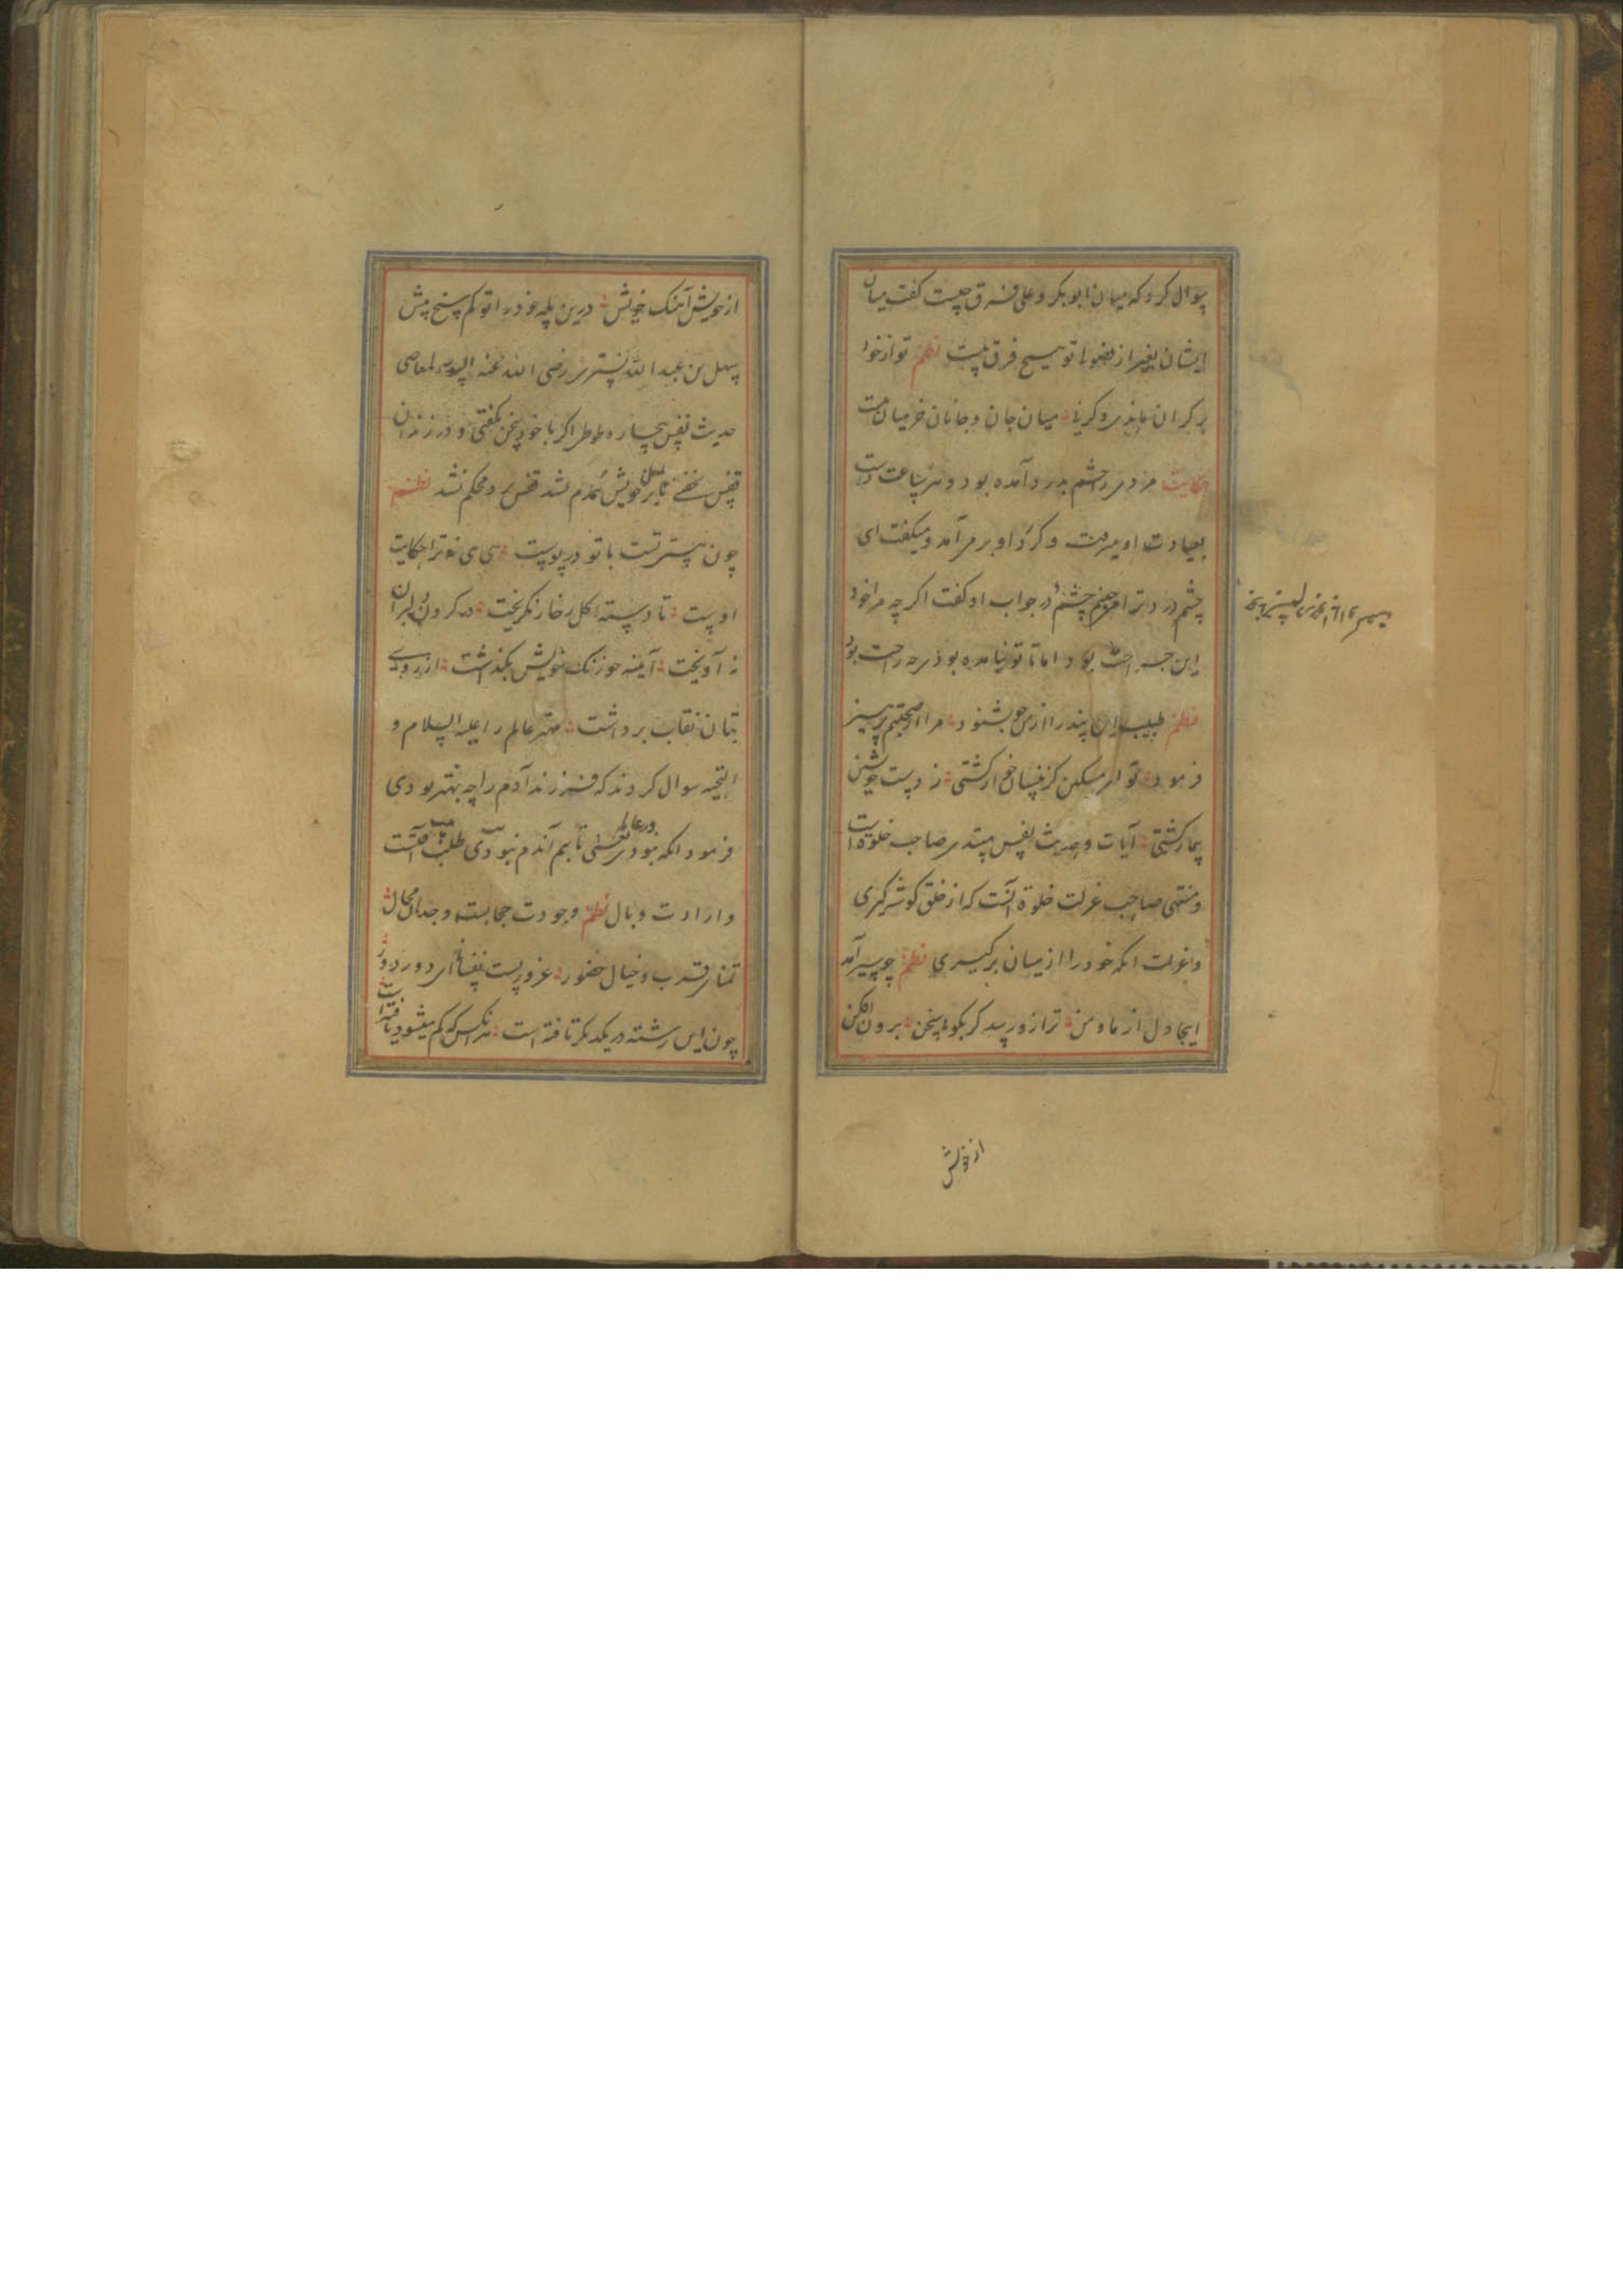 سوال کرد که میان ابوبکر و علی فرق چیست گفت میان
ایشان بغیر از فضولی تو هیچ فرق نیست نظم تو از خود
بر کران ماندی و گر نه میان جان و جانان خر میان نیست
حکایت مردی را چشم بدرد آمده بود و هر ساعت دوست
بعیادت او میرفت و گرد او بر می آمد و میگفت ای
چشم درد ترا در جواب او گفت اگر چه مرا خود
این جراحت بود اما تا تو نیامده بودی راحت بود
نظم طبیب این پند را از من چو بشنود مرا از صحبتم پرهیز
فرمود تو ای مسکین کز نیسان خوار گشتی ز دست خویشتن
بیمار گشتی آیات و حدیث نفس مبتدی صاحب خلوة است
و منتهی صاحب عزلت خلوة آنست که از خلق گوشه گیری
و عزلت آنکه خود را از میان برگیری نظم چو سیر آمد
اینجا دل از ما و من ترا زو رسد گر بگویی سخن برون افکن
از خویش
از خویش آهنگ خویش درین پله خود را تو کم سنج پیش
سهل بن عبد الله تستری رضی الله عنه اسوء المعاصی
حدیث نفس بیچاره طوطی اگر با خود سخن نگفتی و در زندان
قفس نخفتی تا بر خویش همدم نشد قفس بر و محکم نشد نظم
چون هستی تست با تو در پوست هی هی نه ترا حکایت
اوست تا دسته گل ز خار نگریخت در گردن دلبران
نه آویخت آینه چو زنگ خویش بگذاشت از روی
بتان نقاب برداشت مهتر عالم را علیه السلام و
التحیه سوال کردند که فرزند آدم را چه بهتر بودی
فرمود آنکه نبودی در عالم یعنی تا بهم آندم نبودی طلب آفتست
و ارادت وبال نظم وجودت حجابست و جدال محال
تمنای قرب و خیال حضور غرورست نفسانی ای دور دور
چون این رشته در یکدیگر تافته است هر آنکس که گم میشود یافته است